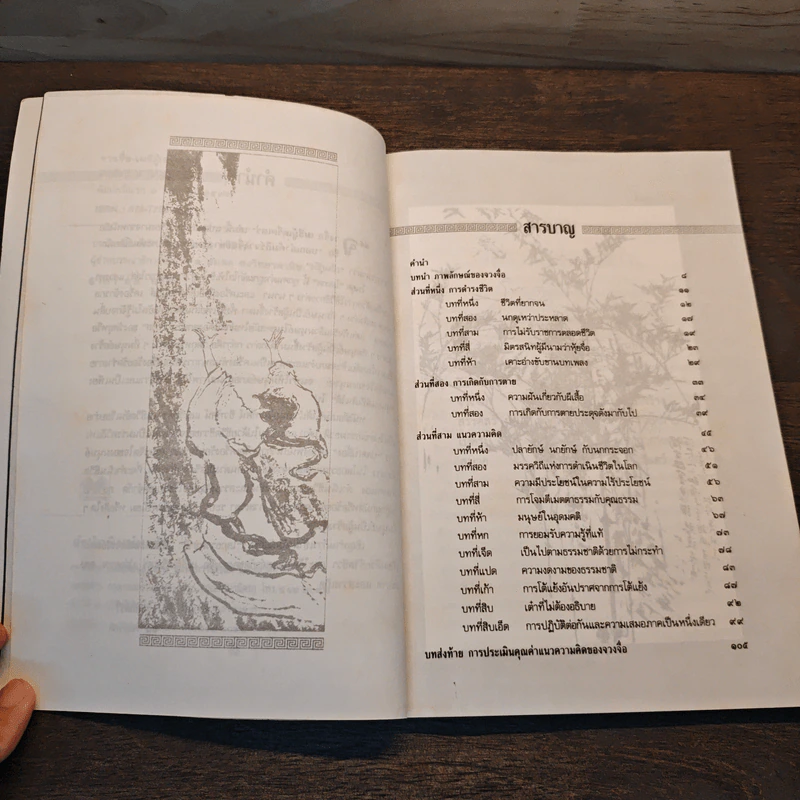 สารบาญ
คำนำ
บทนำ ภาพลักษณ์ของจวงจื่อ ๔
ส่วนที่หนึ่ง การดำรงชีวิต ๑๑
บทที่หนึ่ง ชีวิตที่ยากจน ๑๒
บทที่สอง นกดุเหว่าประหลาด ๑๗
บทที่สาม การไม่รับราชการตลอดชีวิต ๑๙
บทที่สี่ มิตรสนิทผู้มีนามว่าหุ้ยจื่อ ๒๓
บทที่ห้า เคาะอ่างขับขานบทเพลง ๒๙
ส่วนที่สอง การเกิดกับการตาย ๓๓
บทที่หนึ่ง ความฝันเกี่ยวกับผีเสื้อ ๓๔
บทที่สอง การเกิดกับการตายประดุจดังมากับไป ๓๙
ส่วนที่สาม แนวความคิด ๔๕
บทที่หนึ่ง ปลายักษ์ นกยักษ์ กับนกกระจอก ๔๖
บทที่สอง มรรควิถีแห่งการดำเนินชีวิตในโลก ๕๑
บทที่สาม ความมีประโยชน์ในความไร้ประโยชน์ ๕๖
บทที่สี่ การโจมตีเมตตาธรรมกับคุณธรรม ๖๓
บทที่ห้า มนุษย์ในอุดมคติ ๖๗
บทที่หก การยอมรับความรู้ที่แท้ ๗๓
บทที่เจ็ด เป็นไปตามธรรมชาติด้วยการไม่กระทำ ๗๘
บทที่แปด ความงดงามของธรรมชาติ ๘๓
บทที่เก้า การโต้แย้งอันปราศจากการโต้แย้ง ๘๗
บทที่สิบ เต๋าที่ไม่ต้องอธิบาย ๙๒
บทที่สิบเอ็ด การปฏิบัติต่อกันและความเสมอภาคเป็นหนึ่งเดียว ๙๙
บทส่งท้าย การประเมินคุณค่าแนวความคิดของจวงจื่อ ๑๐๕